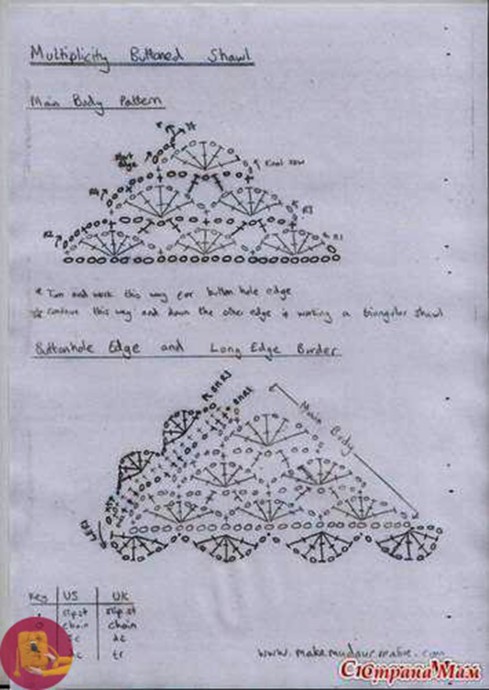 Multiplicity Buttoned Shawl
Main Body Pattern
Start Edge
Final row
R4
R3
R2
R1
* Turn and work this way for button hole edge
☆ Continue this way and down the other edge if working a triangular shawl
Buttonhole Edge and Long Edge Border
Main Body
Key US UK
slip.st slip.st
chain chain
dc
tr
www.makemydaycreative.com
Страна Мам